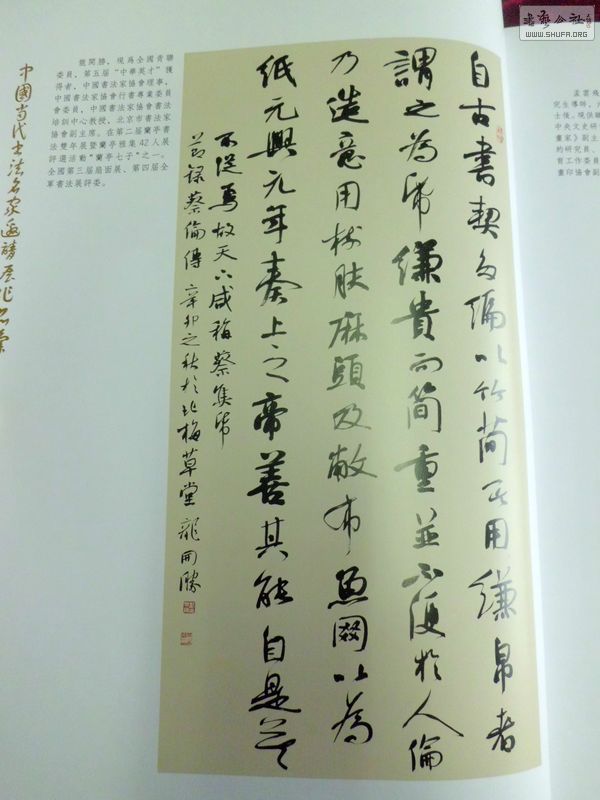 書藝公社
WWW.SHUFA.ORG
孟雲飛
究生導師，
士後。現供職
中央文史研
畫家》副主
的研究員、
育工作委員
畫印協會副
自古書契多編以竹簡其用縑帛者
謂之為帋縑貴而簡重並不便於人倫
乃造意用樹膚麻頭及敝布魚網以為
紙元興元年奏上之帝善其能自是莫
不從焉故天下咸稱蔡侯帋
節錄蔡倫傳 辛卯之秋於北梅草堂 龍開勝
龍開勝，現為全國青聯
委員，第五届“中華英才”獲
得者，中國書法家協會理事，
中國書法家協會行書專業委員
會委員，中國書法家協會書法
培訓中心教授，北京市書法家
協會副主席。在第二届蘭亭書
法雙年展暨蘭亭雅集42人展
評選活動“蘭亭七子”之一。
全國第三届扇面展、第四届全
軍書法展評委。
中國當代書法名家邀請展作品